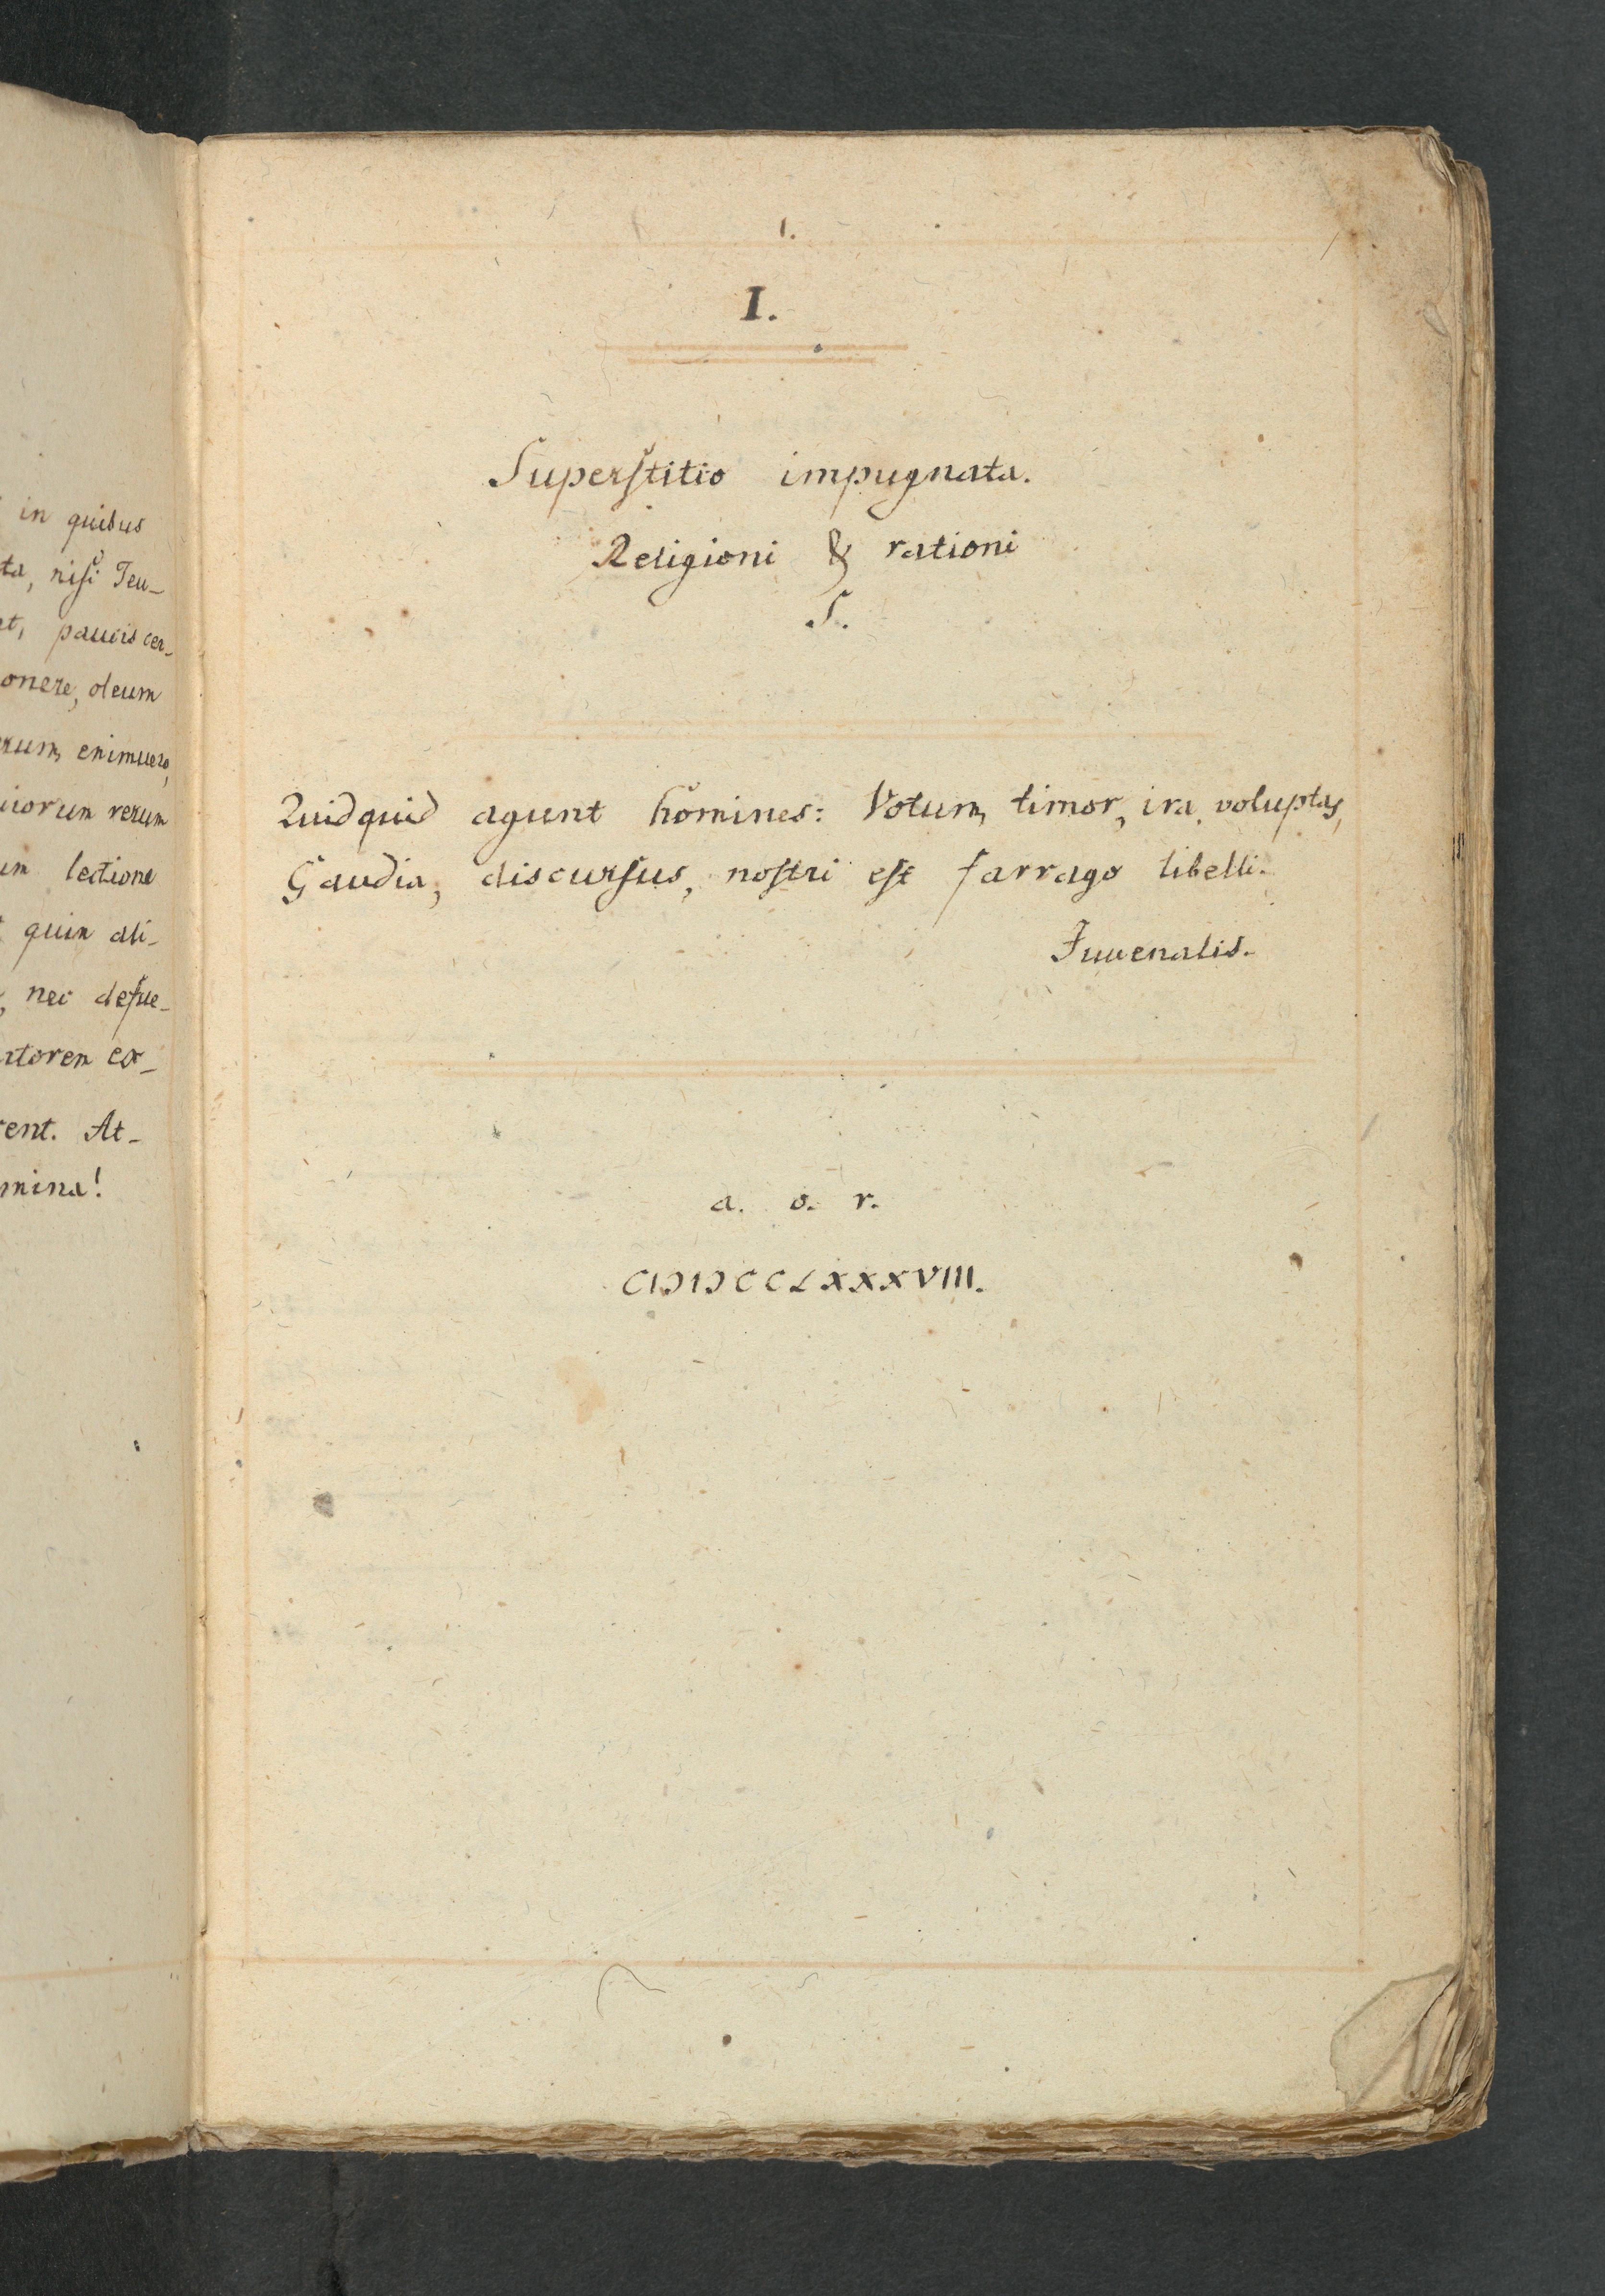 in quibus
ta, niſi Teu-
et, paucis cer-
onere, oleum
erum enimuero,
uiorum rerum
um lectione
quin ali-
, nec defue-
utorem ex-
rent. At-
mina!
1.
I.
Superſtitio impugnata.
Religioni & rationi
S.
Quidquid agunt homines: Votum, timor, ira, voluptas,
Gaudia, discurſus, noſtri eſt farrago libelli.
Iuuenalis.
a. o. r.
CIↃIↃCCLXXXVIII.